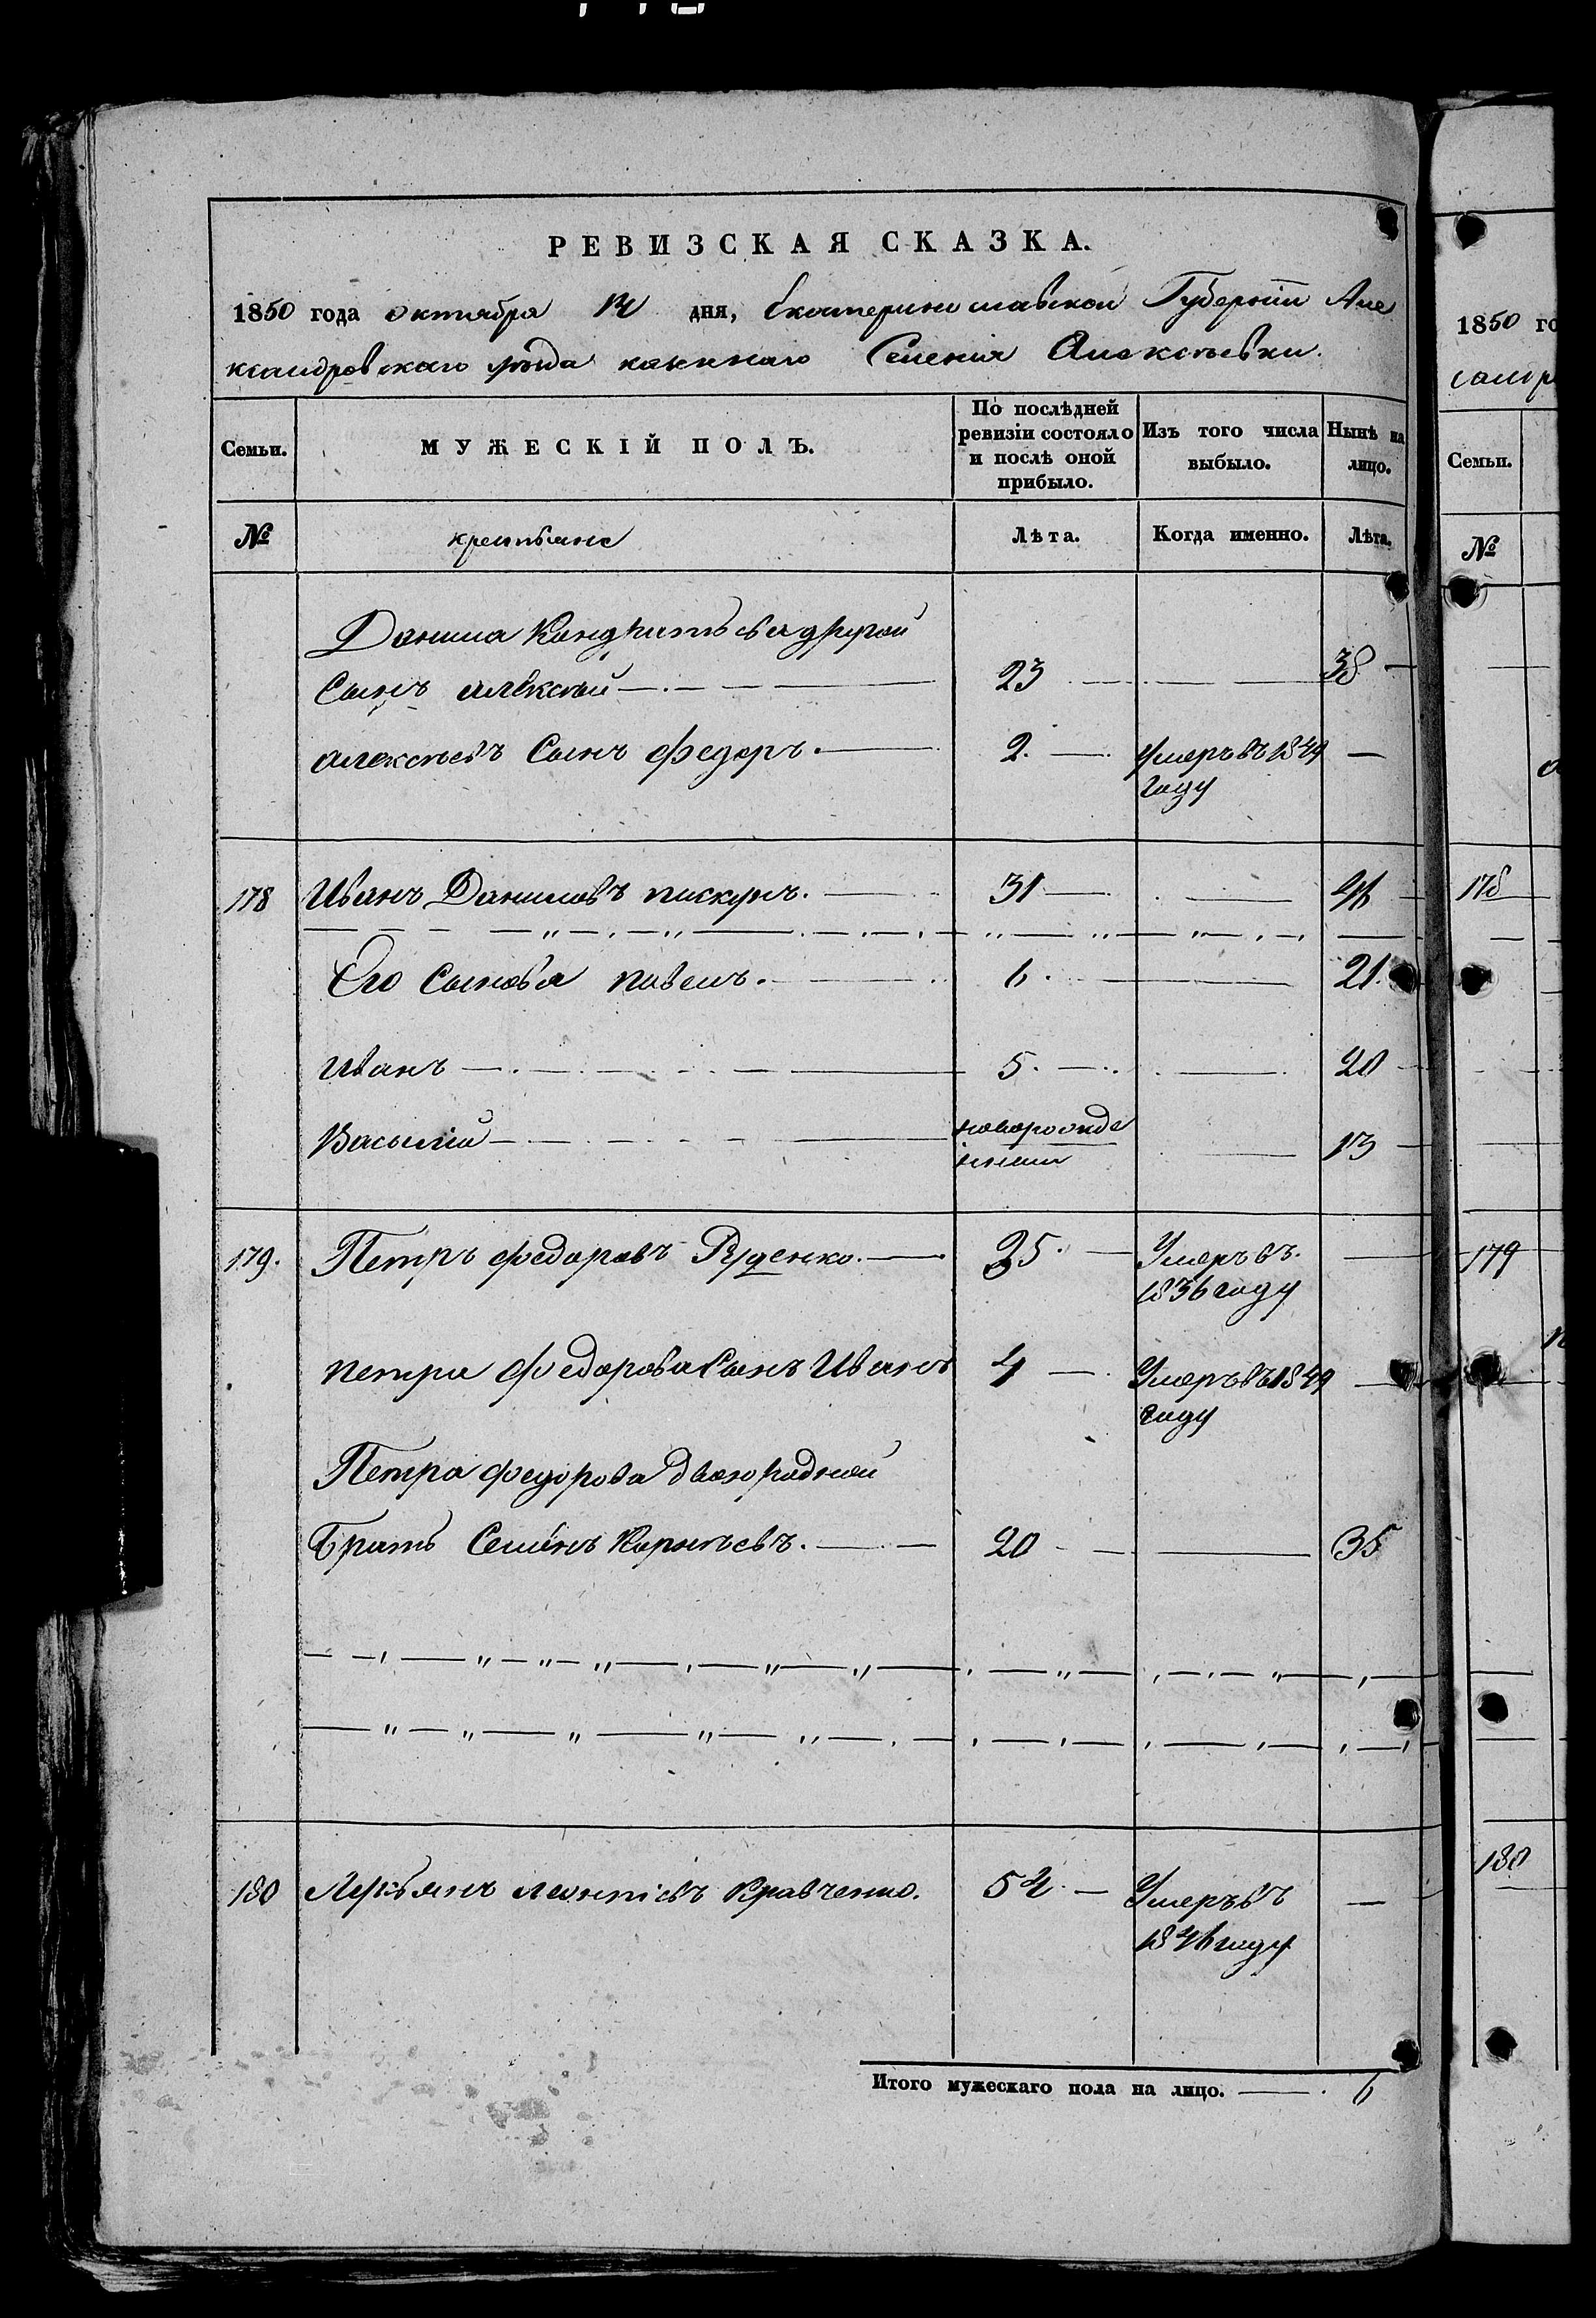 РЕВИЗСКАЯ СКАЗКА.
1850 года октября дня, Екатеринославской Губерніи Але
ксандровскаго уѣзда казеннаго Селенія Алексѣевки.
Семьи.
МУЖЕСКІЙ ПОЛЪ.
По послѣдней ревизіи состояло и послѣ оной прибыло.
Изъ того числа выбыло.
Нынѣ на лицо.
№
крестьяне
Лѣта.
Когда именно.
Лѣта.
Данила Кондратьева другой
Сынъ алексѣй 23 38
алексѣевъ Сынъ федоръ. 2. умеръ въ 1849
году
178 Иванъ Даниловъ пискунъ. 31 46
Его Сыновья павелъ. 6. 21.
Иванъ 5. 20
Василій новорожде 13
нный
179. Петръ федоровъ Руденко. 35. Умеръ въ.
1836 году
петра федорова Сынъ Иванъ 4 Умеръ въ 1849
году
Петра федорова двоюродной
Братъ Семёнъ Корнѣевъ. 20 35
180 Лукьянъ леонтіевъ Кравченко. 54. Умеръ въ
1846 году
Итого мужескаго пола на лицо. 6
1850 го
Семьи.
№
178
179
180